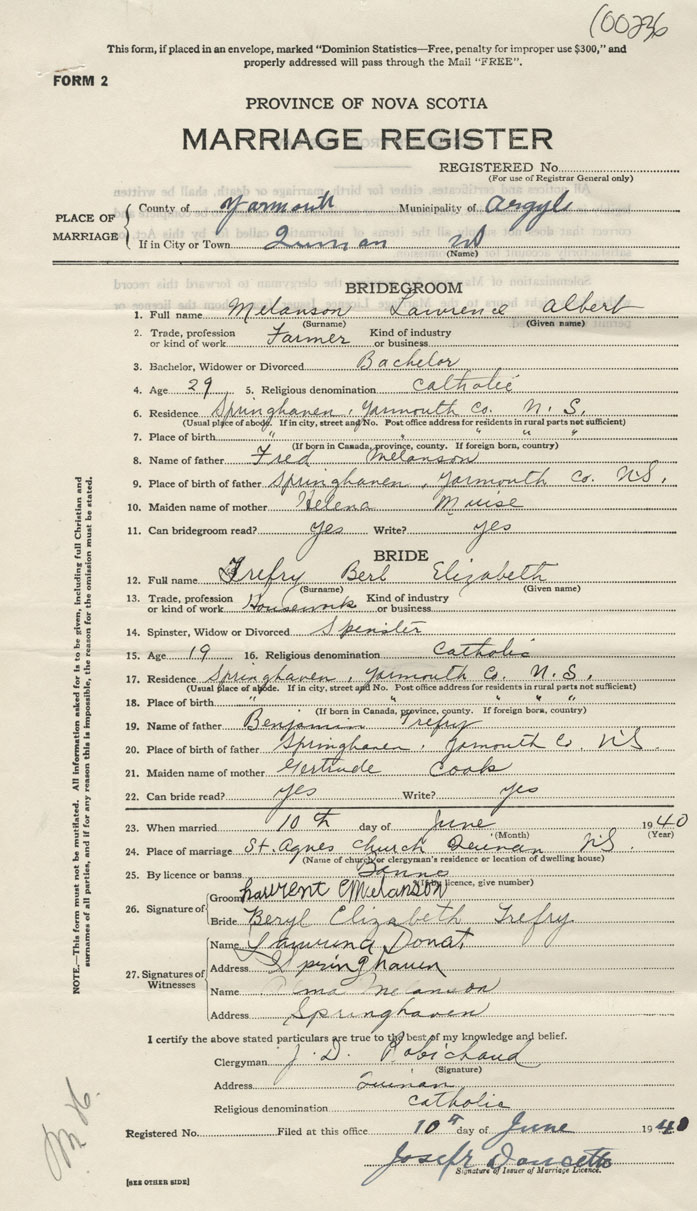 (00236
This form, if placed in an envelope, marked "Dominion Statistics—Free, penalty for improper use $300," and
properly addressed will pass through the Mail "FREE".
FORM 2
PROVINCE OF NOVA SCOTIA
MARRIAGE REGISTER
REGISTERED No.
(For use of Registrar General only)
PLACE OF MARRIAGE
County of Yarmouth Municipality of Argyle
If in City or Town Quinan NS
(Name)
BRIDEGROOM
1. Full name Melanson Lawrence Albert
(Surname) (Given name)
2. Trade, profession or kind of work Farmer Kind of industry or business
3. Bachelor, Widower or Divorced Bachelor
4. Age 29 5. Religious denomination Catholic
6. Residence Springhaven, Yarmouth Co. N. S.
(Usual place of abode. If in city, street and No. Post office address for residents in rural parts not sufficient)
7. Place of birth " " " "
(If born in Canada, province, county. If foreign born, country)
8. Name of father Fred Melanson
9. Place of birth of father Springhaven, Yarmouth Co. NS.
10. Maiden name of mother Helena Muise
11. Can bridegroom read? yes Write? yes
BRIDE
12. Full name Trefry Berl Elizabeth
(Surname) (Given name)
13. Trade, profession or kind of work Housework Kind of industry or business
14. Spinster, Widow or Divorced Spinster
15. Age 19 16. Religious denomination Catholic
17. Residence Springhaven, Yarmouth Co. N. S.
(Usual place of abode. If in city, street and No. Post office address for residents in rural parts not sufficient)
18. Place of birth " " " "
(If born in Canada, province, county. If foreign born, country)
19. Name of father Benjamin Trefry
20. Place of birth of father Springhaven, Yarmouth Co. NS.
21. Maiden name of mother Gertrude Cook
22. Can bride read? yes Write? yes
23. When married 10th day of June 1940
(Month) (Year)
24. Place of marriage St. Agnes Church Quinan NS.
(Name of church or clergyman's residence or location of dwelling house)
25. By licence or banns Banns
(If by licence, give number)
26. Signature of
Groom Laurent E Melanson
Bride Beryl Elizabeth Trefry
27. Signatures of Witnesses
Name Donat
Address Springhaven
Name Melanson
Address Springhaven
I certify the above stated particulars are true to the best of my knowledge and belief.
Clergyman J. D. Robichaud
(Signature)
Address Quinan
Religious denomination Catholic
Registered No. Filed at this office 10th day of June 1940
Joseph Doucette
Signature of Issuer of Marriage Licence.
[SEE OTHER SIDE]
NOTE.—This form must not be mutilated. All information asked for is to be given, including full Christian and
surnames of all parties, and if for any reason this is impossible, the reason for the omission must be stated.